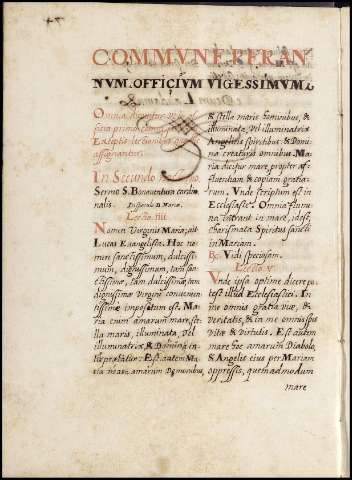 COMMVNE PER AN
NVM. OFFICIVM VIGESSIMVM.
Omnia
Exceptis
assignantur.
In Secundo
Sermo S. Bonauentura cardi
nalis. In speculo B. Mariæ.
Lectio iiij.
Nomen Virginis Maria, ait
Lucas Euangelista. Hoc no-
men sanctissimum, dulcissi-
mum, dignissimum, tam san-
ctissimæ, tam dulcissimæ, tam
dignissimæ Virgini conuenien
tissime impositum est. Ma
ria enim amarum mare, ste
lla maris, illuminata, Vel
illuminatrix, & Domina in-
terpretatur: Est autem Ma
ria mare amarum Dæmonibus,
& stilla maris hominibus, &
illuminata, Vel illuminatrix
Angelicis spiritibus & Domi
na creaturis omnibus. Ma
ria dicitur mare, propter af
fluentiam & copiam gratia
rum. Vnde scriptum est in
Ecclesiaste. Omnia flumi
na intrant in mare, idest,
charismata Spiritus sancti
in Mariam.
℟. Vidi speciosam.
Lectio v.
Vnde ipsa optime dicere po
test illud Ecclesiastici. In
me omnis gratia viæ, &
veritatis, & in me omnis spes
Vitæ & Virtutis. Est autem
mare hoc amarum Diabolo,
& Angelis eius per Mariam
oppressis, quemadmodum
mare